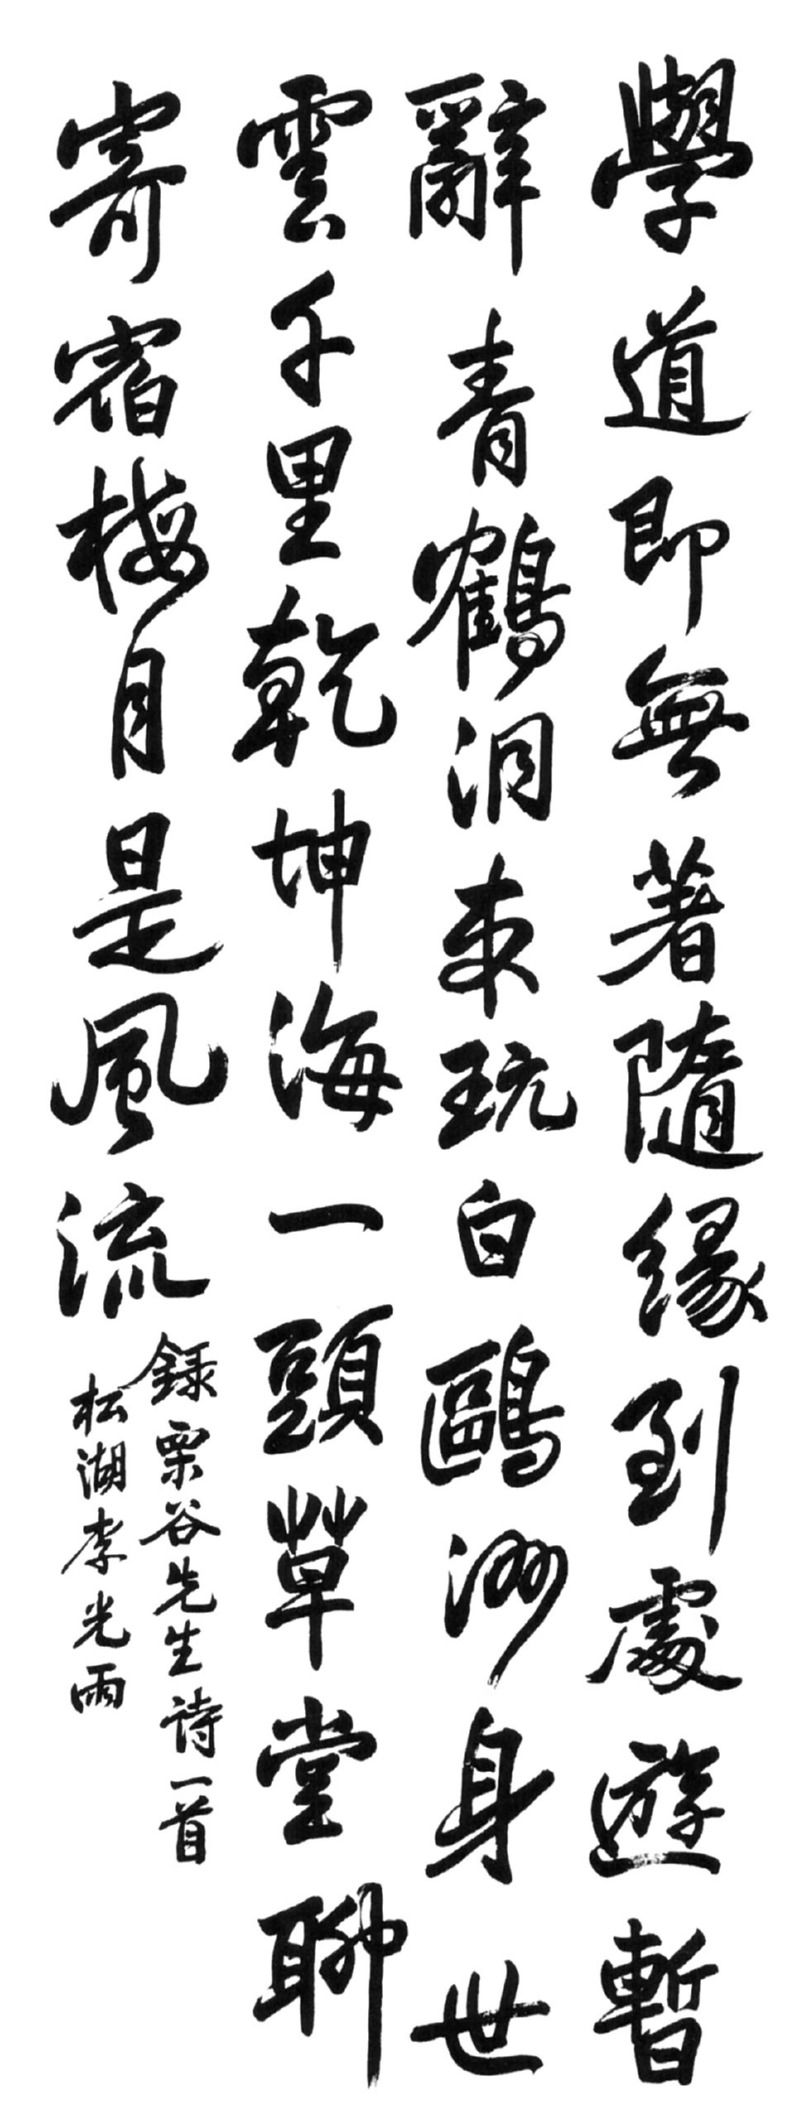 學道即無著隨緣到處遊暫
辭青鶴洞來玩白鷗洲身世
雲千里乾坤海一頭草堂聊
寄宿梅月是風流
録栗谷先生詩一首
松湖李光雨